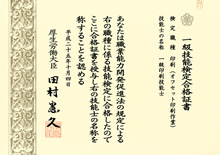 一級技能検定合格証書
検定職種 印刷(オフセット印刷作業)
技能士の名称 一級印刷技能士
あなたは職業能力開発促進法の規定による
右の職種に係る技能検定に合格したので
ここに合格証書を授与し右の技能士の名称を
称することを認める
平成二十五年十月四日
厚生労働大臣
田村憲久